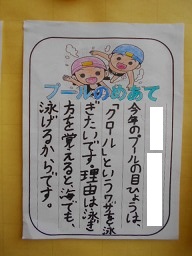 プールのめあて
今年のプールの目ひょうは、
「クロール」というワザを泳
ぎたいです。理由は泳ぎ
方を覚えると海でも、
泳げるからです。